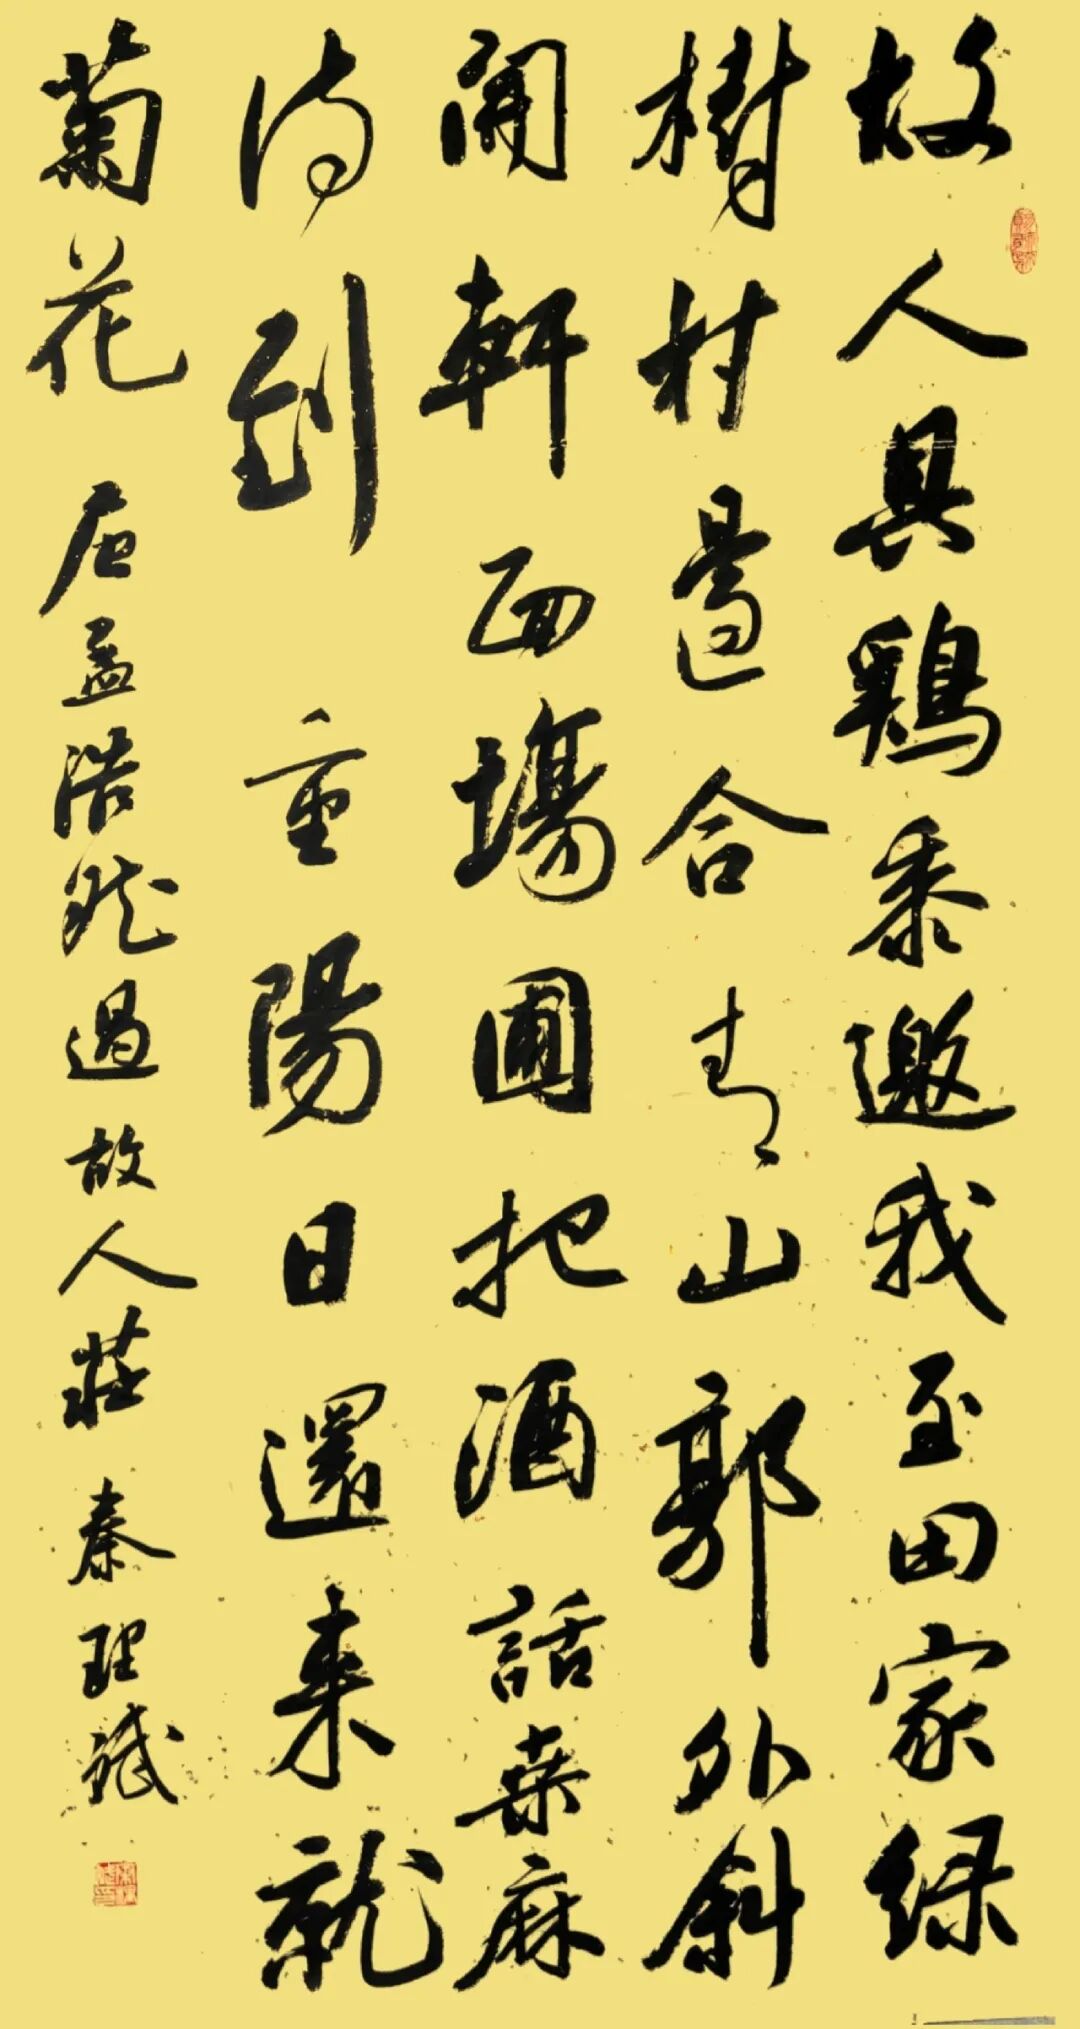 故人具鷄黍邀我至田家綠
樹村邊合青山郭外斜
開軒面塲圃把酒話桑麻
待到重陽日還来就
菊花 唐孟浩然過故人莊 秦理斌